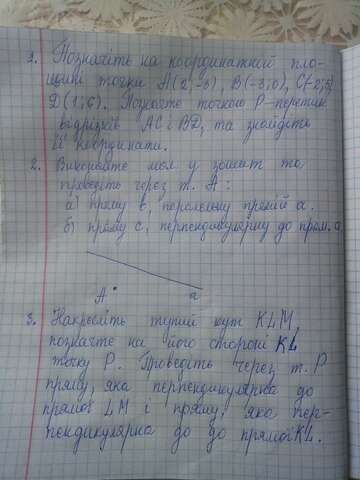 1. Позначіть на координатній пло-
щині точки А(2;-3), В(-3;0), С(-2;5),
D(1;6). Позначте точкою P-перетин
відрізків АС і BD, та знайдіть
її координати.
2. Виконайте мал у зошит та
проведіть через т. А:
а) пряму в, паралельну прямій а.
б) пряму с, перпендикулярну до прям. а
А
а
3. Накресліть тупий кут KLM,
позначте на його стороні KL
точку P. Проведіть через т. P
пряму, яка перпендикулярна до
прямої LM і пряму, яка пер-
пендикулярна до до прямої KL.